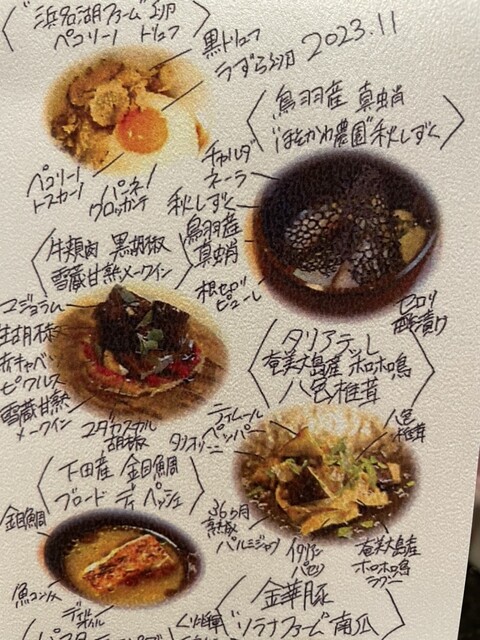 "浜名湖ファーム"卵
ペコリーノ トリュフ
黒トリュフ
うずら卵
2023.11
ペコリーノ
トスカーノ
パーネ
クロッカンテ
鳥羽産 真蛸
"ほそかわ農園"秋しずく
チャルダ
ネーラ
秋しずく
鳥羽産
真蛸
根セロリ
ピューレ
セロリ
酢漬け
牛頬肉 黒胡椒
雪蔵甘熟メークイン
マジョラム
生胡椒
赤キャベツ
ピクルス
雪蔵甘熟
メークイン
マダガスカル
胡椒
タリアテッレ
奄美大島産 ホロホロ鳴
八色椎茸
ティムール
ペッパー
タリオリーニ
八色
椎茸
36ヶ月
熟成
パルミジャーノ
イタリアン
パセリ
奄美大島産
ホロホロ鳴
ラグー
下田産 金目鯛
ブロード ディ ペッシェ
金目鯛
魚コンソメ
ディル
オイル
金華豚
"ソラナファーム"南瓜